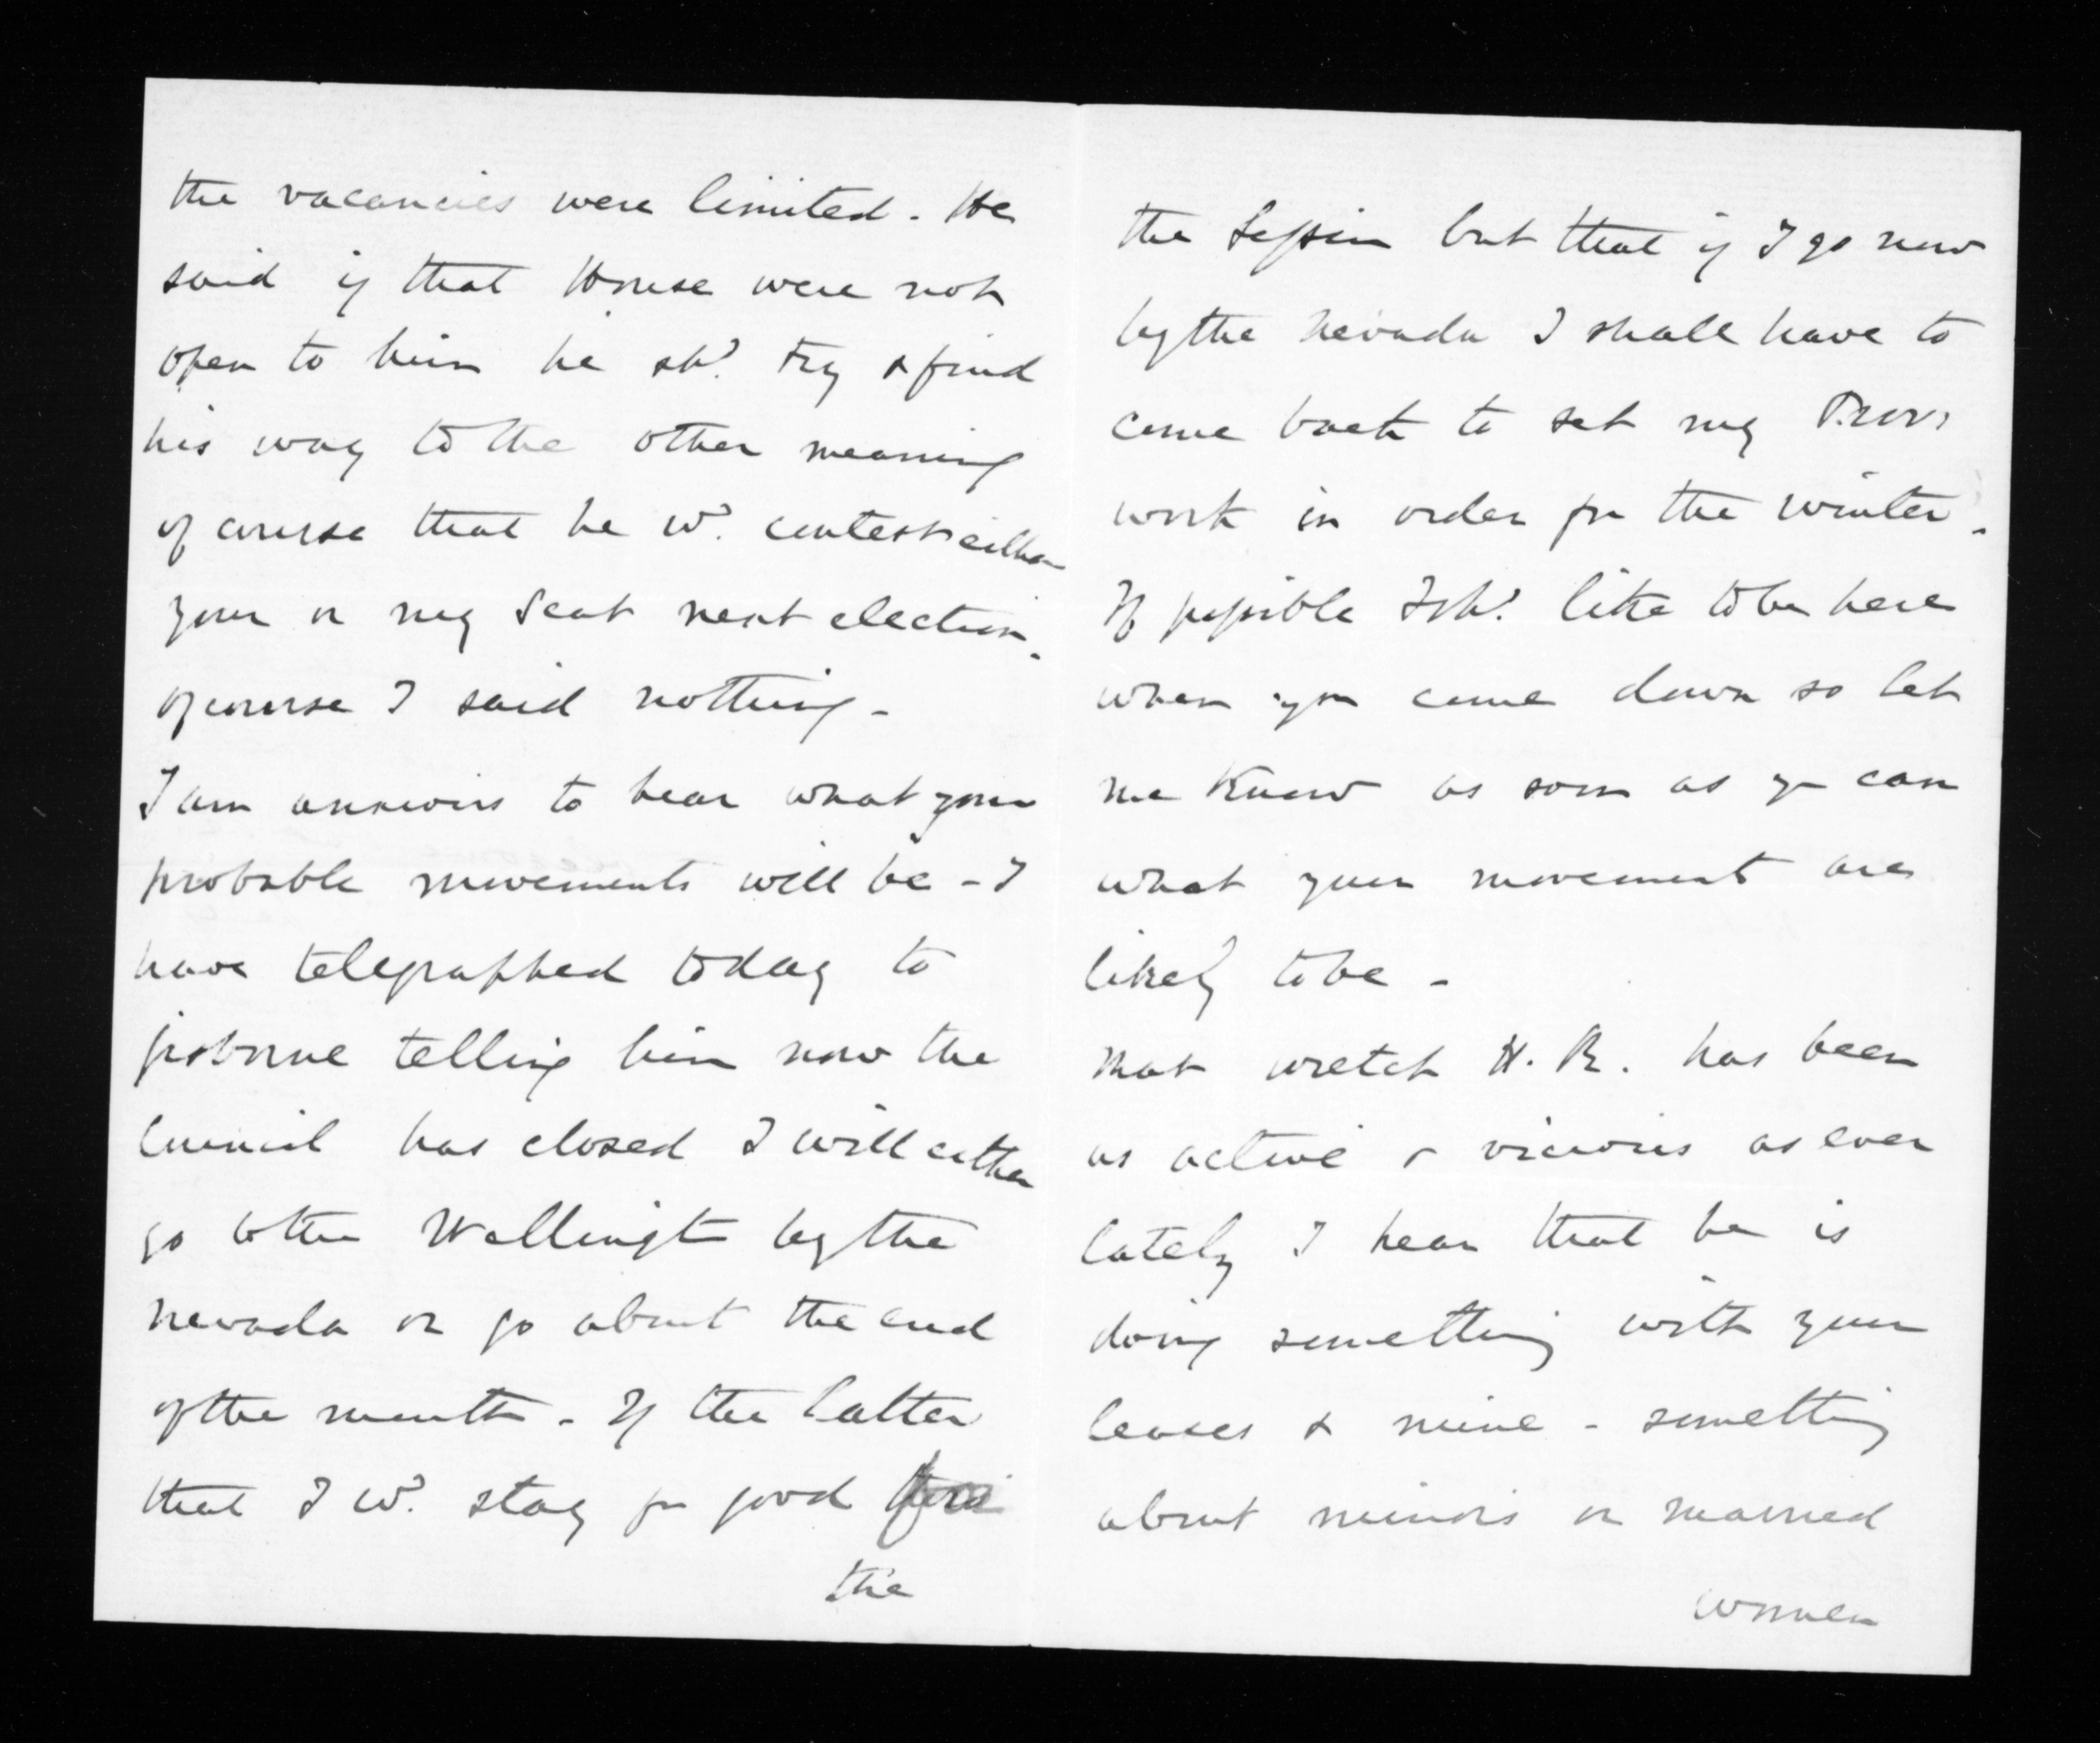 the vacancies were limited. He
said if that House were not
open to him he shd. try & find
his way to the other meaning
of course that he wd. contest either
your or my Seat next election.
of course I said nothing -
I am anxious to hear what your
probable movements will be - I
have telegraphed today to
Gisborne telling him now the
Council has closed I will either
go to the Wellington by the
Nevada or go about the end
of the month - If the latter
that I wd. stay for good
the
the Session but that if I go now
by the Nevada I shall have to
come back to set my Provl
work in order for the winter.
If possible I shd. like to be here
when you come down so let
me know as soon as yo can
what your movement are
likely to be -
That wretch H. R. has been
as active & vicious as ever
lately I hear that he is
doing something with your
leases & mine - something
about minors or married
women